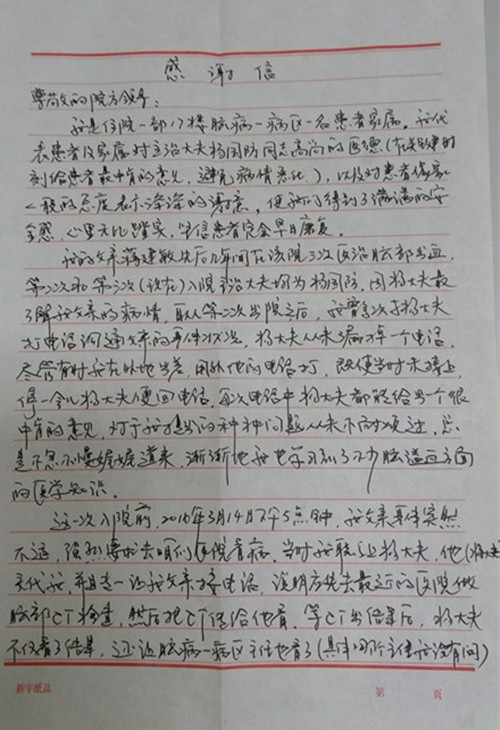 感谢信
尊敬的院方领导：
我是住院一部17楼脑病一病区一名患者家属。我代
表患者及家属对主治大夫杨国防同志高尚的医德（在关键时
刻给患者最中肯的意见，避免病情恶化），以及对患者像家
人般的态度表示深深的谢意，使我们得到了满满的安
全感，心里无比踏实，坚信患者定会早日康复。
我的父亲蒋建敏先后几年间在该院三次医治脑部出血，
第二次和第三次（现在）入院主治大夫均为杨国防，因杨大夫最
了解我父亲的病情，所以第二次出院之后，我曾多次与杨大夫
打电话沟通父亲的身体状况，杨大夫从未漏掉一个电话，
尽管有时我在外地出差，用外地的电话打，即使当时未接上，
停一会儿杨大夫便回电话，每次电话中杨大夫都能给出一个很
中肯的意见，对于我提出的种种问题从未不耐烦过，总
是不急不慢娓娓道来，渐渐地我也学习到了不少脑溢血方面
的医学知识。
这一次入院前，2016年3月14日下午5点钟，我父亲身体突然
不适，强烈要求去咱们医院看病，当时我联系上杨大夫，他（杨大夫）
交代我，并且也一让我父亲接电话，说明应先去最近的医院做
脑部CT检查，然后把CT传给他看，等CT出结果后，杨大夫
不仅看了结果，还让脑病一病区主任也看了（具体哪个主任我没有问）
新宇纸品
第 页